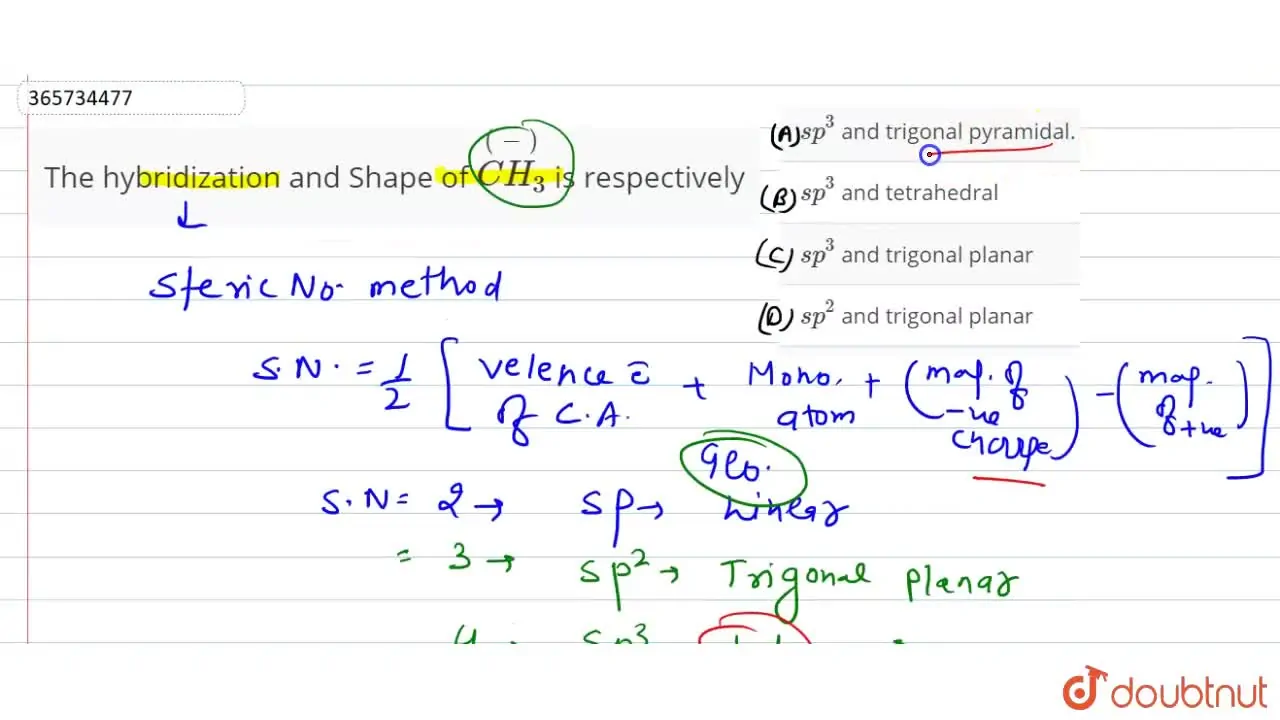 365734477
(-)
The hybridization and Shape of CH₃ is respectively
(A) sp³ and trigonal pyramidal.
(B) sp³ and tetrahedral
(C) sp³ and trigonal planar
(D) sp² and trigonal planar
↓
Steric No. method
S.N. = 1/2 [ velence ē of C.A. + Mono. atom + (mag. of -ve charge) - (mag. of +ve) ]
Geo.
S.N = 2 → sp → Linear
= 3 → sp² → Trigonal planar
4 sp³
doubtnut